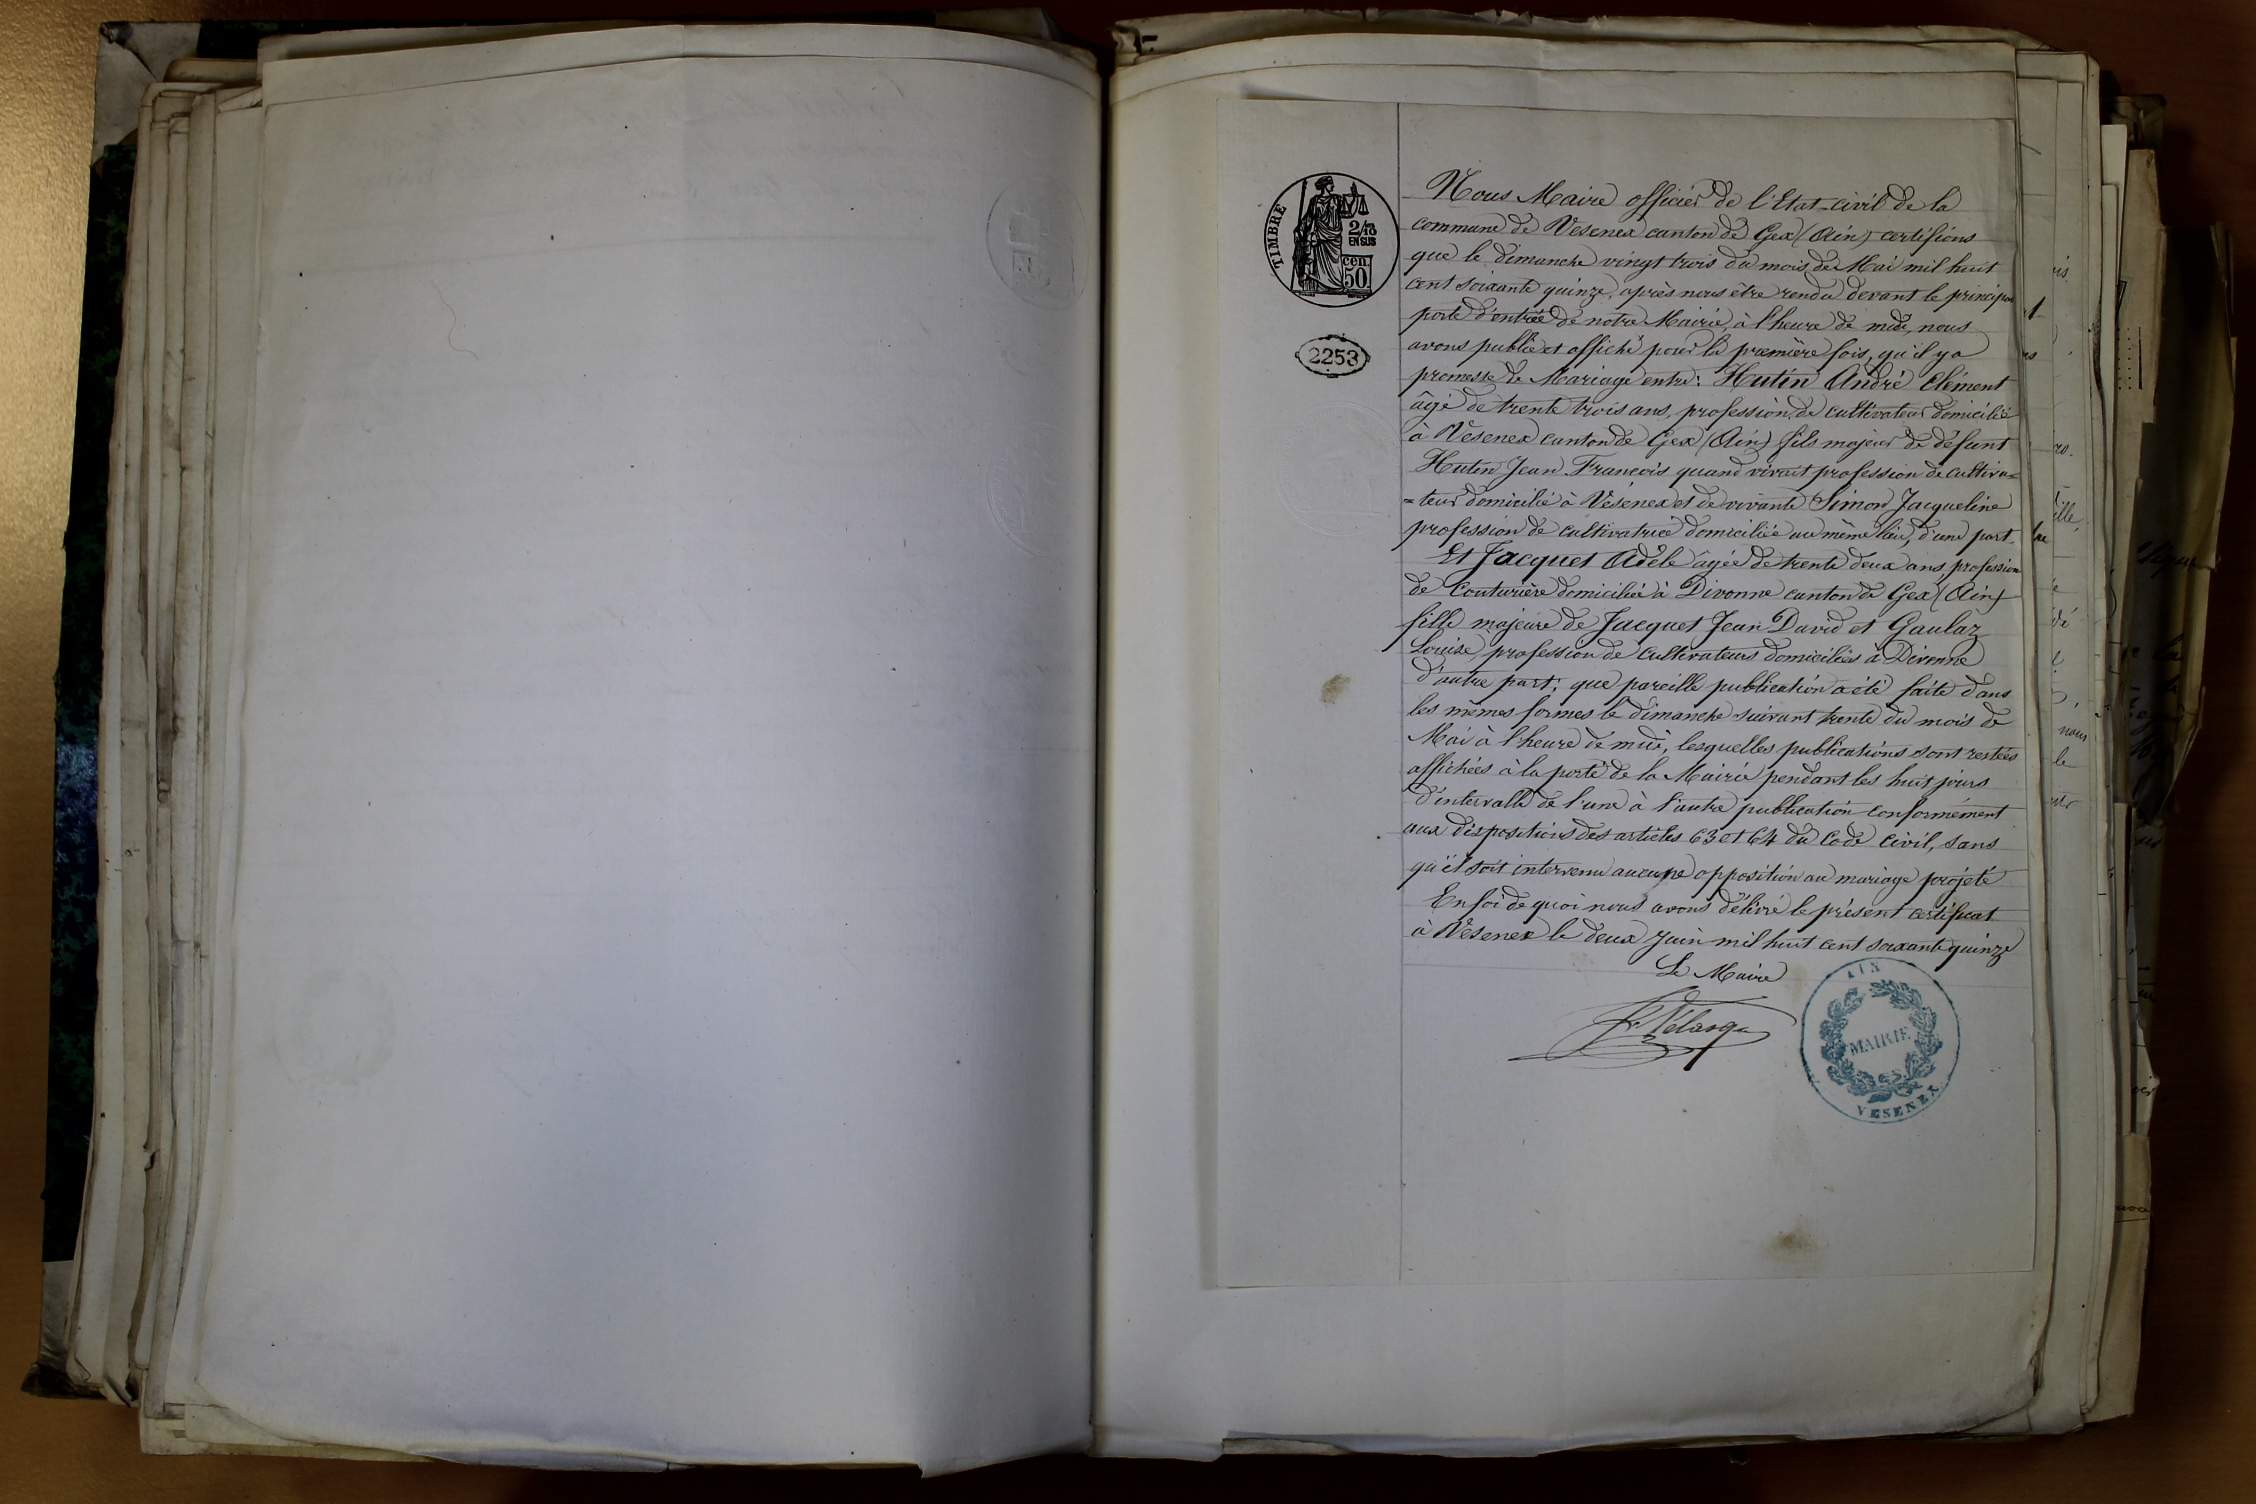 TIMBRE
2/10
EN SUS
cen.
50
2253
Nous Maire officier de l'Etat-civil de la
commune de Vesenex canton de Gex (Ain) certifions
que le dimanche vingt trois du mois de Mai mil huit
cent soixante quinze, après nous être rendu devant le principale
porte d'entrée de notre Mairie, à l'heure de midi, nous
avons publié et affiché pour la première fois, qu'il y a
promesse de Mariage entre: Hutin André Clément
âgé de trente trois ans, profession de cultivateur domicilié
à Vesenex canton de Gex (Ain) fils majeur de défunt
Hutin Jean François quand vivait profession de cultiva=
=teur domicilié à Vésenex et de vivante Simon Jacqueline
profession de cultivatrice domiciliée au même lieu, d'une part.
Et Jacquet Adèle âgée de trente deux ans, profession
de Couturière domiciliée à Divonne canton de Gex (Ain)
fille majeure de Jacquet Jean David et Gaulaz
Louise, profession de Cultivateurs domiciliés à Divonne
d'autre part; que pareille publication a été faite dans
les mêmes formes le dimanche suivant trente du mois de
Mai à l'heure de midi, lesquelles publications sont restées
affichées à la porte de la Mairie pendant les huit jours
d'intervalle de l'une à l'autre publication conformément
aux dispositions des articles 63 et 64 du Code civil, sans
qu'il soit intervenu aucune opposition au mariage projeté
En foi de quoi nous avons délivré le présent certificat
à Vesenex le deux Juin mil huit cent soixante quinze
Le Maire
AIN
MAIRIE
VESENEX
nous
le